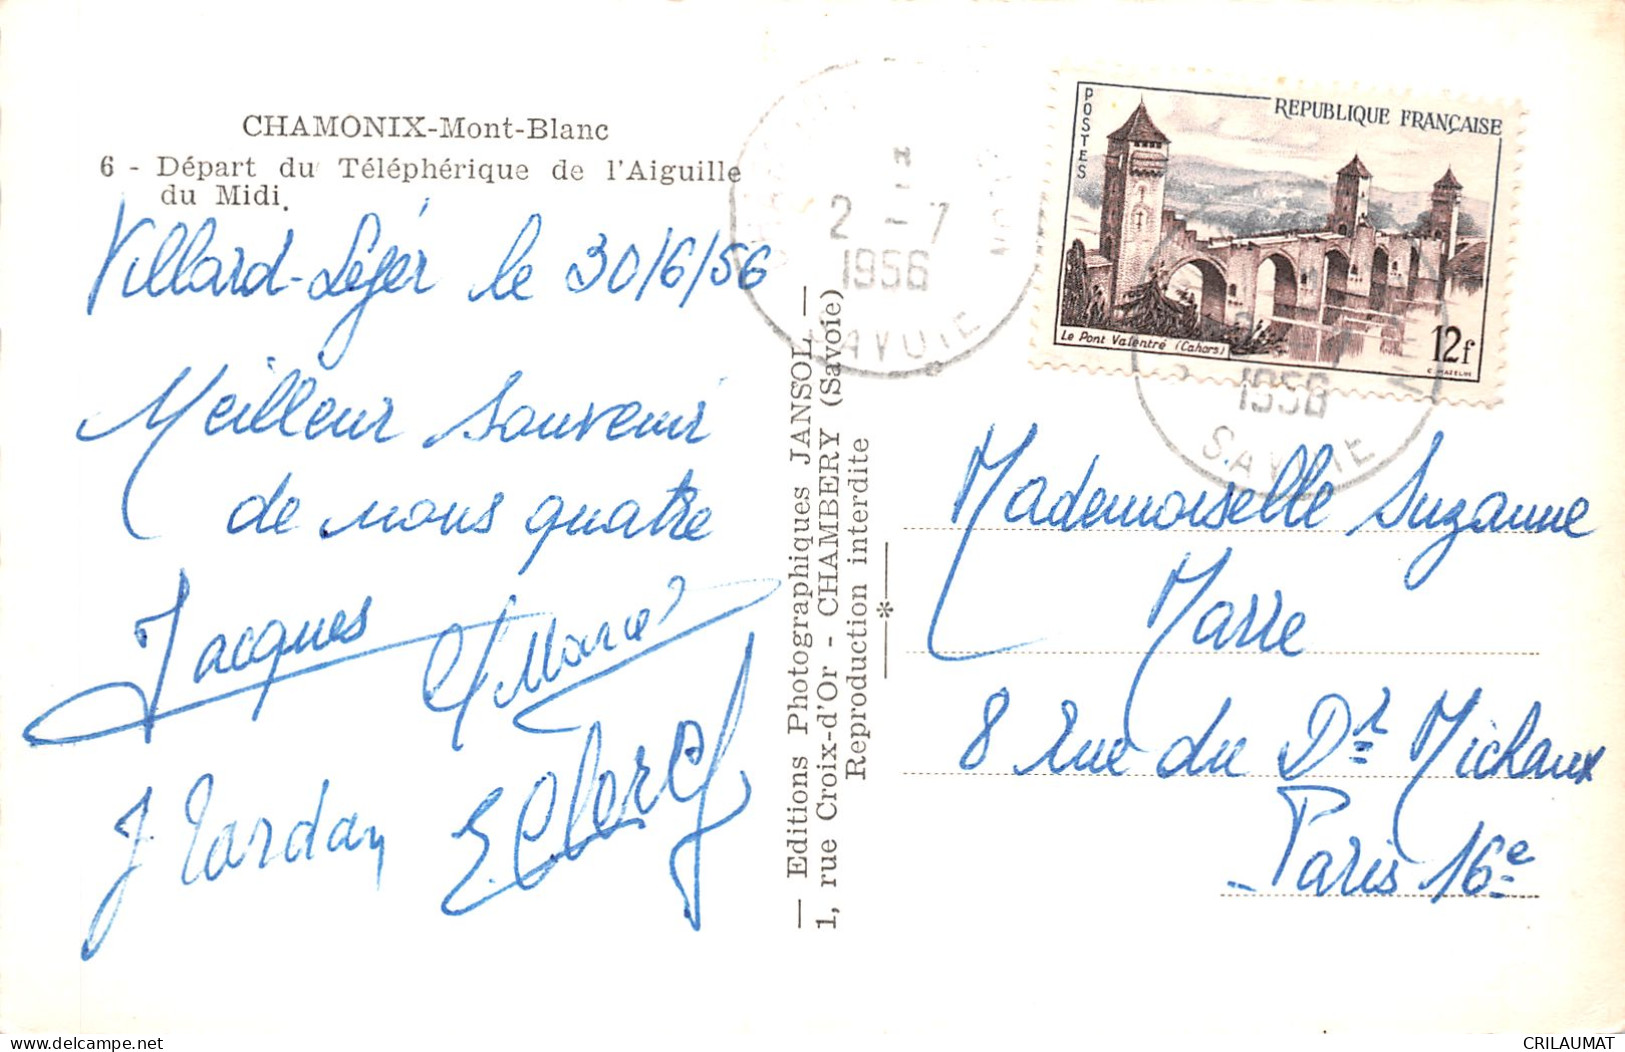 CHAMONIX-Mont-Blanc
6 - Départ du Téléphérique de l'Aiguille
du Midi.
Villard-Léger le 30/6/56
Meilleur souvenir
de nous quatre
Jacques
J. Tardan E. Clerc
— Editions Photographiques JANSOL —
1, rue Croix-d'Or - CHAMBERY (Savoie)
Reproduction interdite
2 - 7
1956
SAVOIE
POSTES
REPUBLIQUE FRANÇAISE
Le Pont Valentré (Cahors)
12f
C. MAZELIN
1956
SAVOIE
Mademoiselle Suzanne
Marre
8 Rue du Dr Michaux
Paris 16e
CRILAUMAT